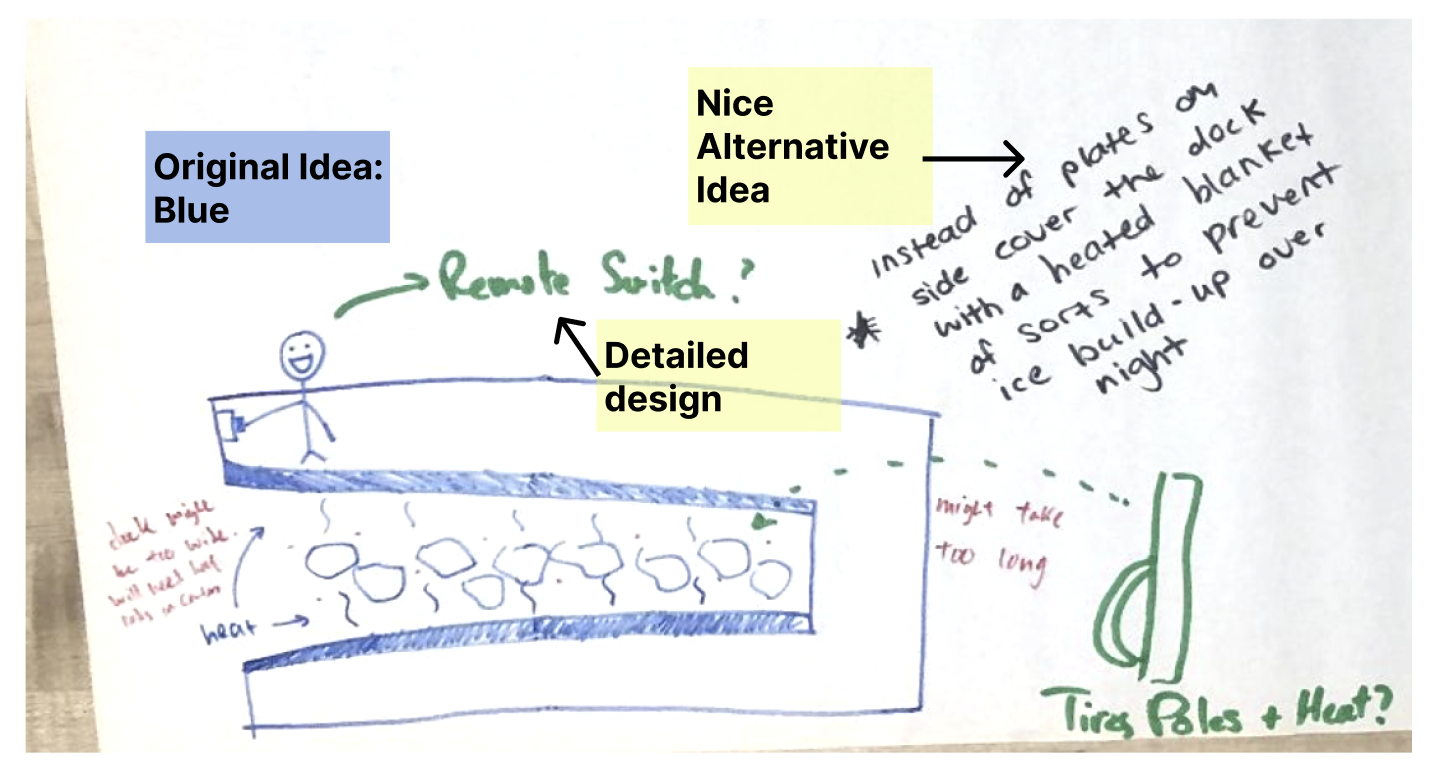 Original Idea:
Blue
Nice
Alternative
Idea
instead of plates on
side cover the dock
with a heated blanket
of sorts to prevent
ice build-up over
night
Remote Switch?
Detailed
design
dock might
be too wide.
will need hot
rods in
heat
might take
too long
Tires, Poles + Heat?